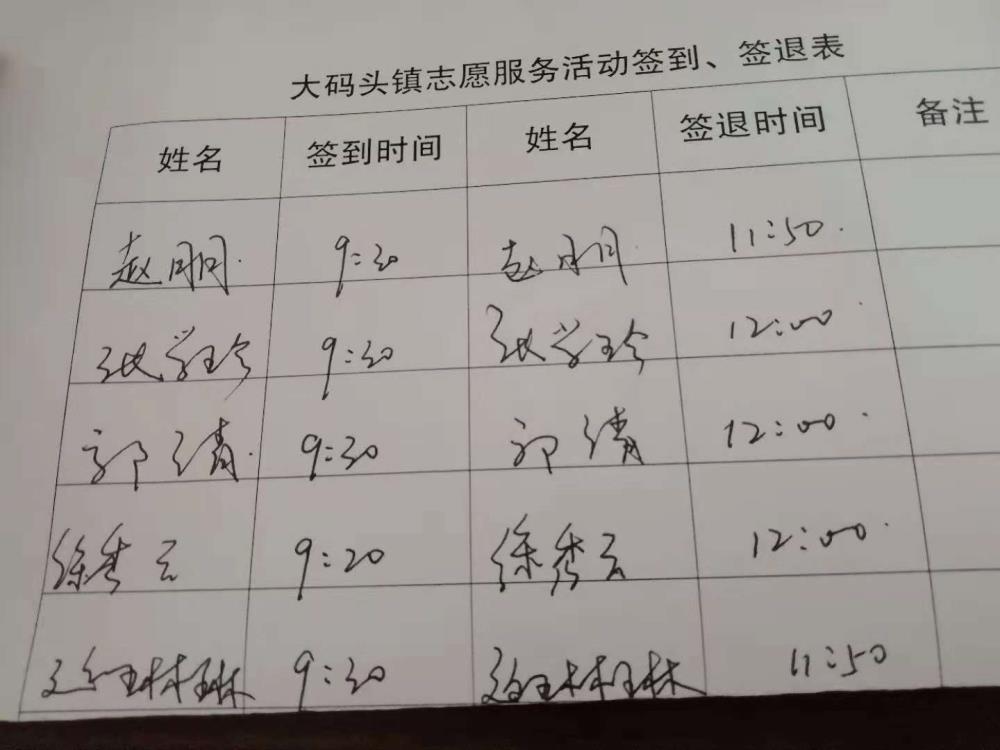 大码头镇志愿服务活动签到、签退表
姓名 签到时间 姓名 签退时间 备注
赵明月 9:30 赵明月 11:50
张学玲 9:30 张学玲 12:00
郭清 9:30 郭清 12:00
徐秀云 9:20 徐秀云 12:00
9:30 11:50